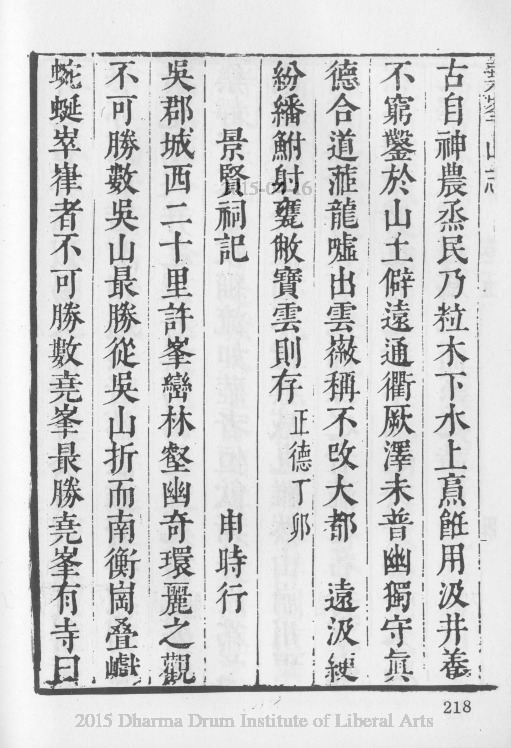 古自神農烝民乃粒木下水上烹飪用汲井養
不窮鑿於山土僻遠通衢厥澤未普幽獨守眞
德合道蒞龍噓出雲嶶稱不改大都　遠汲綆
紛繙鮒射甕敝寶雲則存　正德丁卯
景賢祠記　　申時行
吳郡城西二十里許峯巒林壑幽奇環麗之觀
不可勝數吳山最勝從吳山折而南衡崗叠巘
蜿蜒崒嵂者不可勝數堯峯最勝堯峯有寺曰
218
2015 Dharma Drum Institute of Liberal Arts